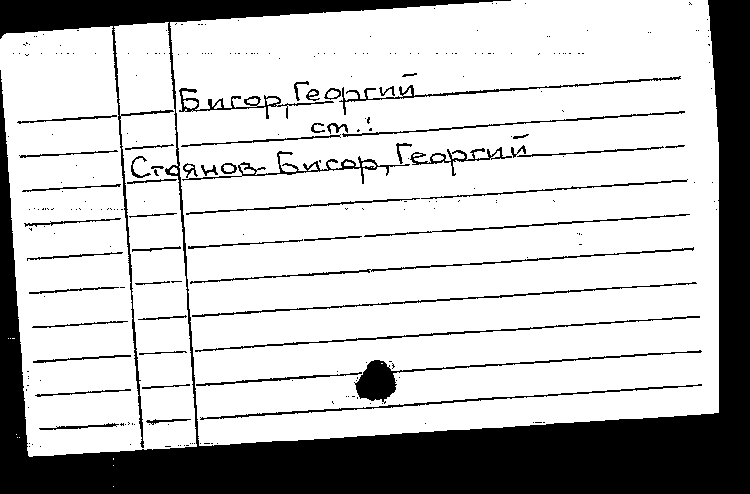 Бигор, Георгий
ст.:
Стоянов-Бигор, Георгий